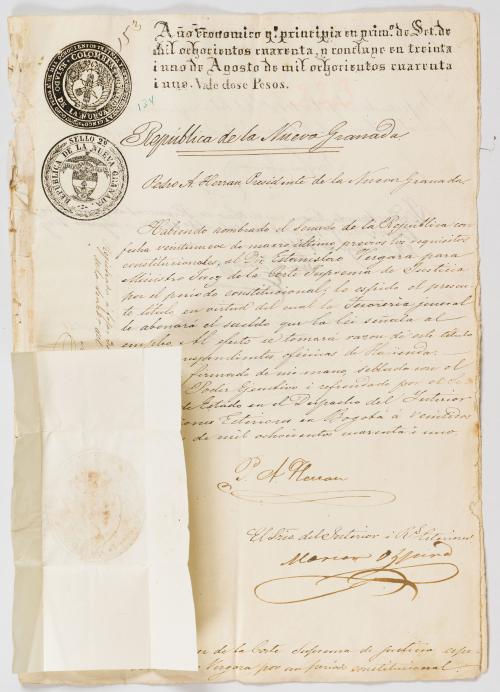 15º
Año economico qᵉ. principia en primº. de Set. de
mil ochocientos cuarenta, y concluye en treinta
i uno de Agosto de mil ochocientos cuarenta
i uno. Vale dose Pesos.
134
COLOMBIA
DE LA NUEVA
SELLO 2º
REPUBLICA DE LA NUEVA GRANADA
República de la Nueva Granada
Pedro A. Herran Presidente de la Nueva Granada
Habiendo nombrado el senado de la República con
fecha veintinueve de marzo último previos los requisitos
constitucionales, al Dr. Estanislao Vergara para
Ministro Juez de la Corte Suprema de Justicia
por el período constitucional; le espido el presen
te título en virtud del cual la Tesorería jeneral
le abonará el sueldo que la lei señala al
empleo. Al efecto se tomará razon de este título
respondientes oficinas de Hacienda.
firmado de mi mano, sellado con el
Poder Ejecutivo i refrendado por el Se
de Estado en el Despacho del Interior
iones Esteriores en Bogotá á veintidos
de mil ochocientos cuarenta i uno.
P. A. Herran
El Srio. del Interior i Rs. Esteriores
Mariano Ospina
de la Corte Suprema de justicia espe
Vergara por un período constitucional.